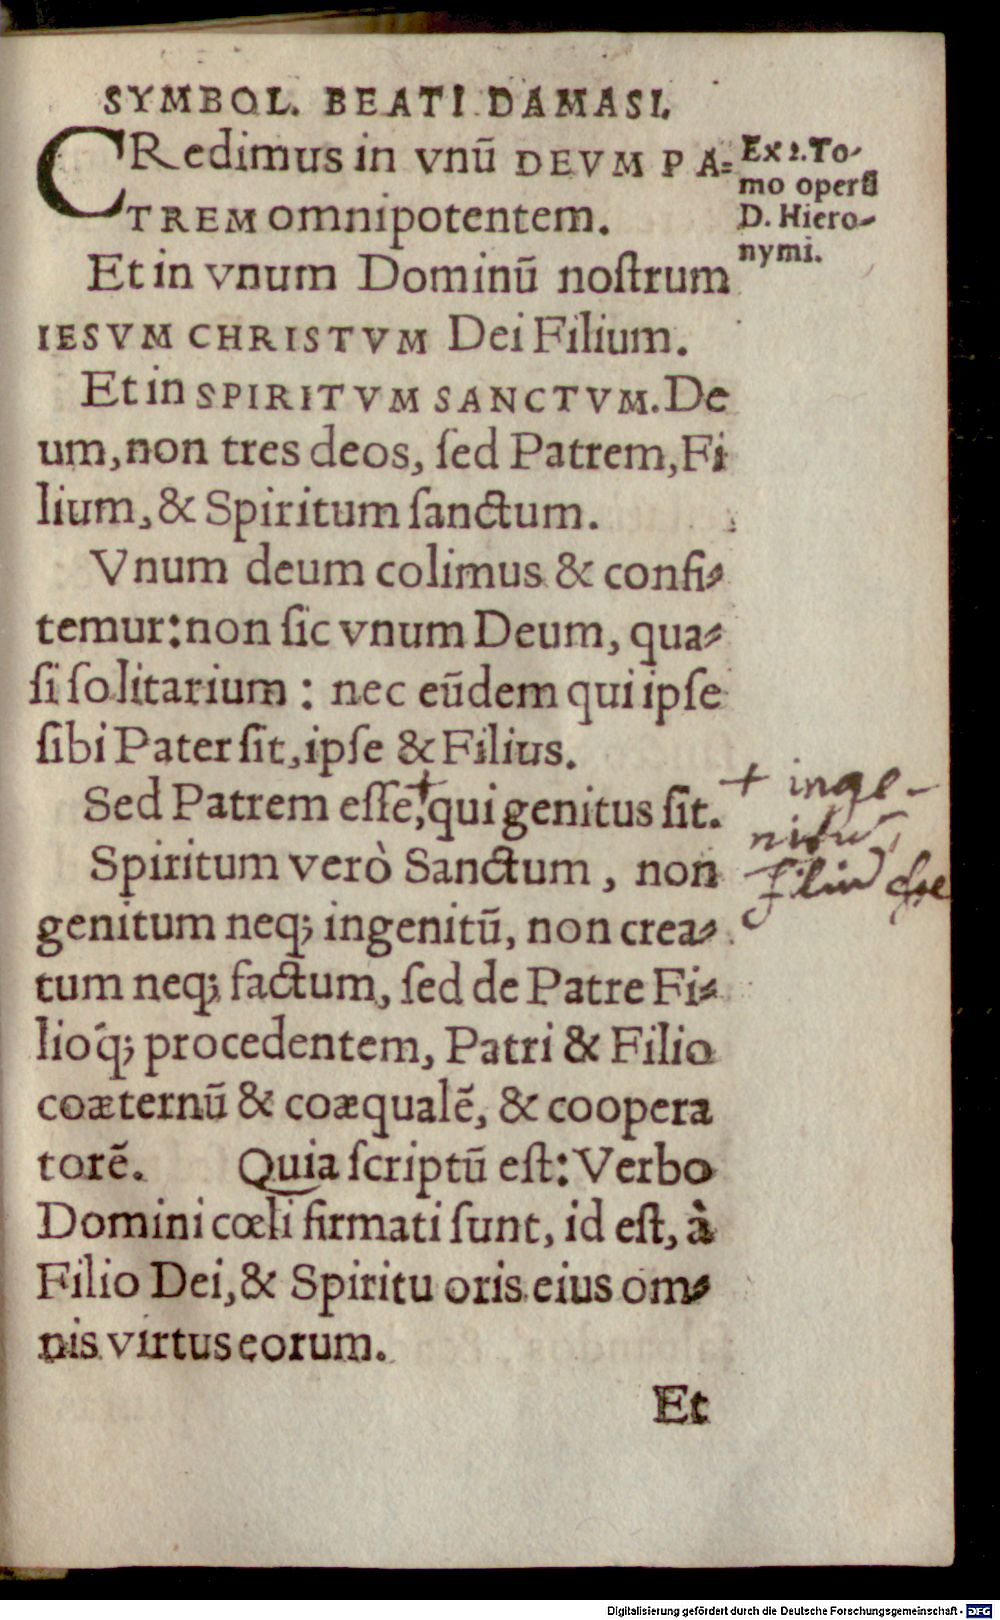 SYMBOL. BEATI DAMASI.
CRedimus in vnū DEVM PA=
TREM omnipotentem.
Ex 2. To-
mo operū
D. Hiero-
nymi.
Et in vnum Dominū noſtrum
IESVM CHRISTVM Dei Filium.
Et in SPIRITVM SANCTVM. De
um, non tres deos, ſed Patrem, Fi
lium, & Spiritum ſanctum.
Vnum deum colimus & confi-
temur: non ſic vnum Deum, qua-
ſi ſolitarium: nec eūdem qui ipſe
ſibi Pater ſit, ipſe & Filius.
Sed Patrem eſſe,+ qui genitus ſit.
+ inge-
nitū,
Filiū esse
Spiritum verò Sanctum, non
genitum neq; ingenitū, non crea-
tum neq; factum, ſed de Patre Fi-
lioq́; procedentem, Patri & Filio
coæternū & coæqualē, & coopera
torē. Quia ſcriptū eſt: Verbo
Domini cœli firmati ſunt, id eſt, à
Filio Dei, & Spiritu oris eius om-
nis virtus eorum.
Et
Digitalisierung gefördert durch die Deutsche Forschungsgemeinschaft - DFG